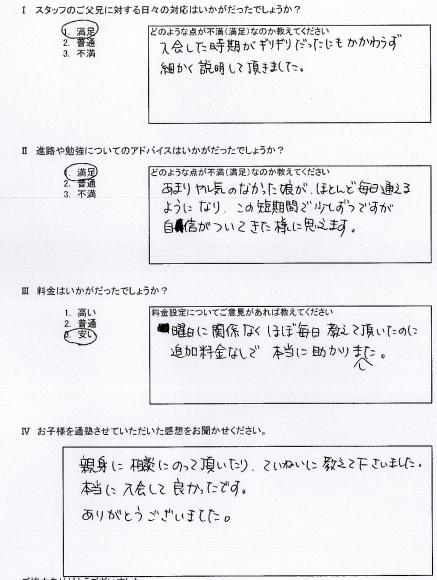 Ⅰ スタッフのご父兄に対する日々の対応はいかがだったでしょうか？
1. 満足
2. 普通
3. 不満
どのような点が不満(満足)なのか教えてください
入会した時期がギリギリだったにもかかわらず
細かく説明して頂きました。
Ⅱ 進路や勉強についてのアドバイスはいかがだったでしょうか？
1. 満足
2. 普通
3. 不満
どのような点が不満(満足)なのか教えてください
あまりやる気のなかった娘が、ほとんど毎日通える
ようになり、この短期間で少しずつですが
自信がついてきた様に思えます。
Ⅲ 料金はいかがだったでしょうか？
1. 高い
2. 普通
3. 安い
料金設定についてご意見があれば教えてください
曜日に関係なくほぼ毎日教えて頂いたのに
追加料金なしで 本当に助かりました。
Ⅳ お子様を通塾させていただいた感想をお聞かせください。
親身に相談にのって頂いたり、ていねいに教えて下さいました。
本当に入会して良かったです。
ありがとうございました。